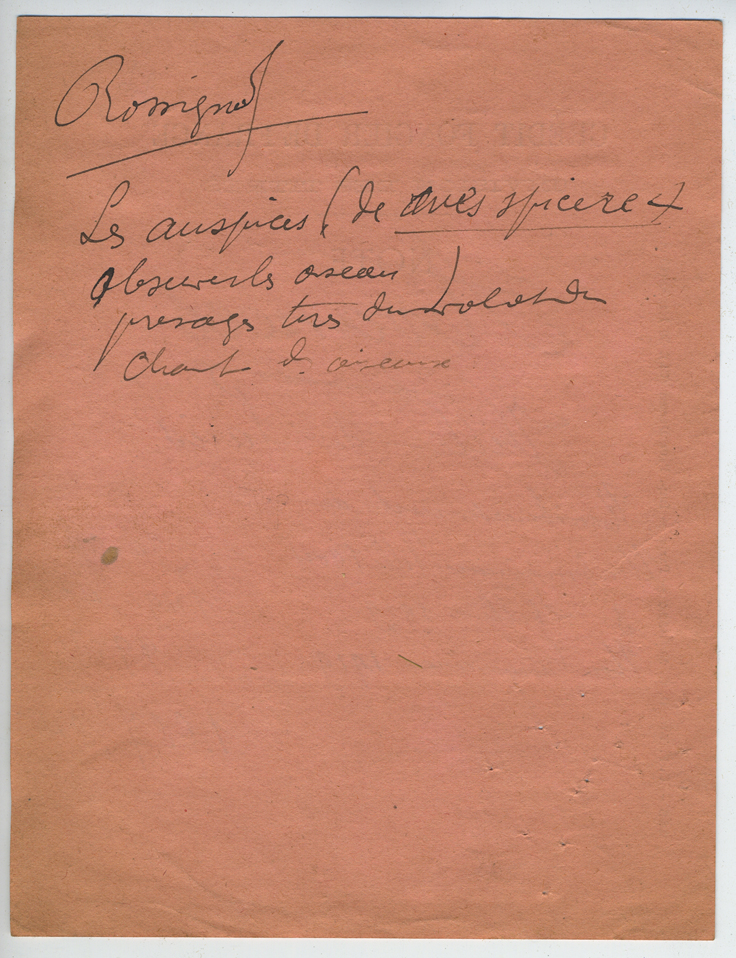 Rossignol
Les auspices (de aves spicere
observer les oiseau )
presages tires du vol et du
chant d. oiseaux